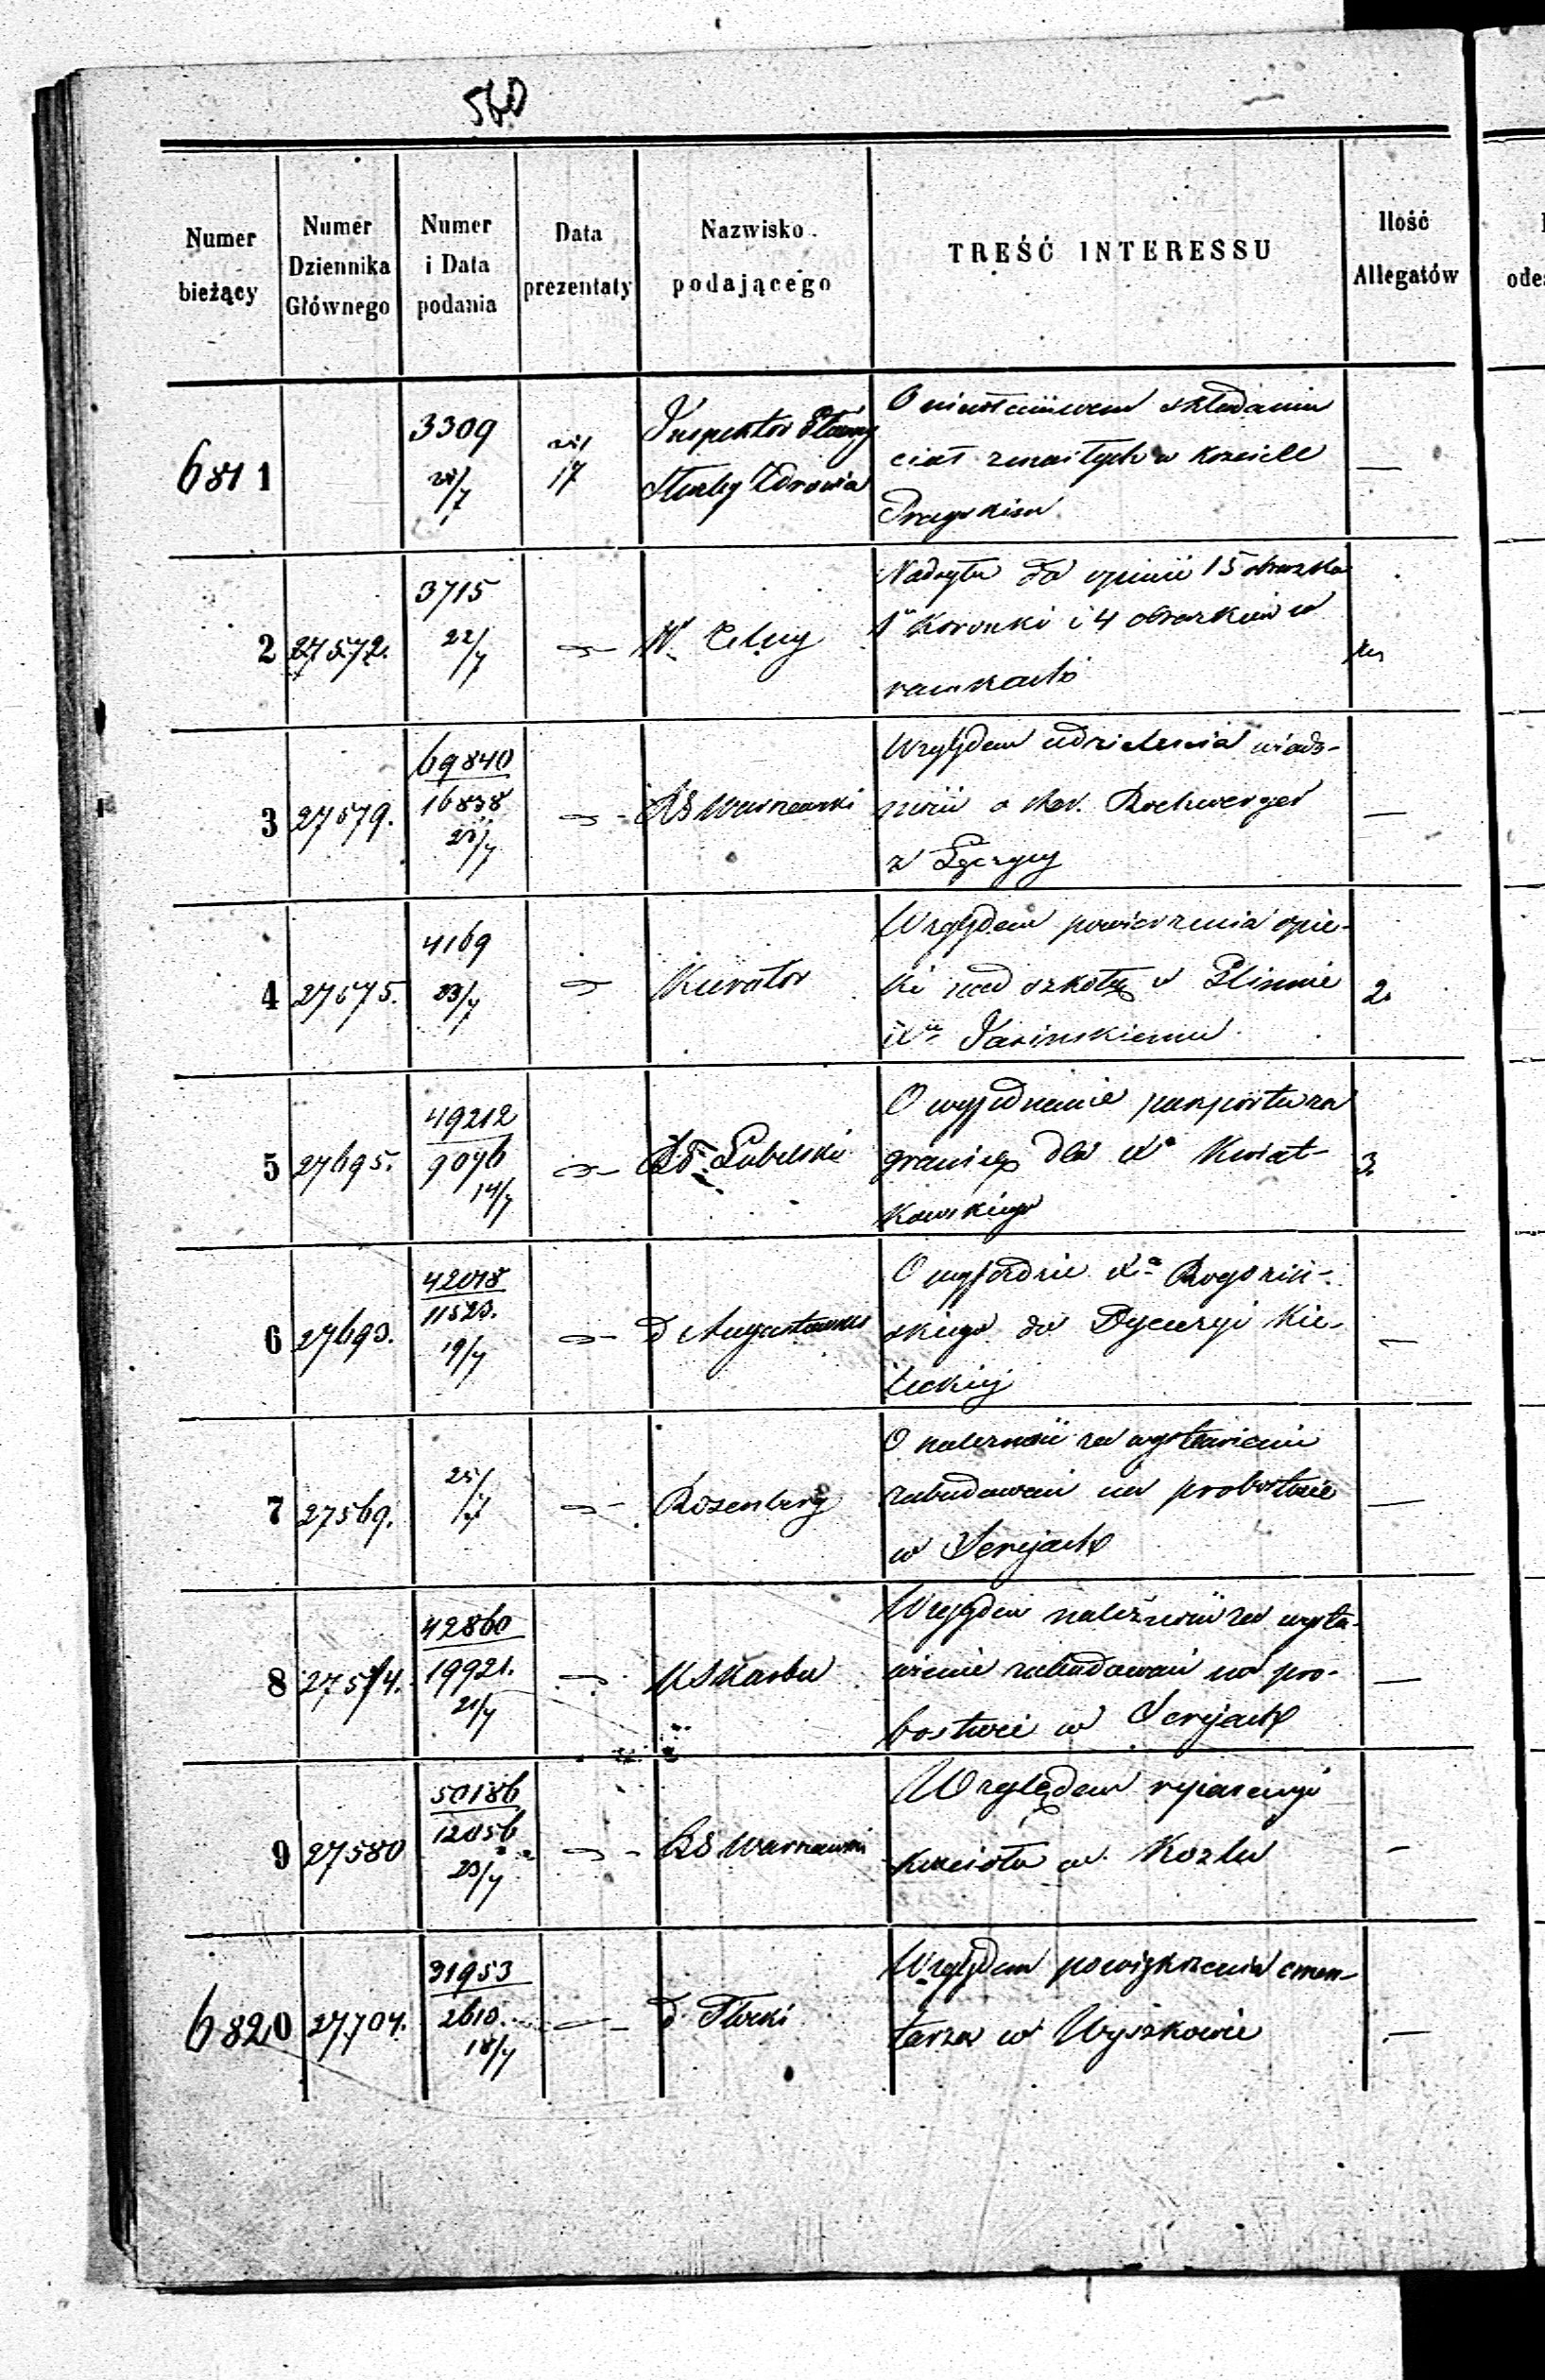 560
Numer bieżący
Numer Dziennika Głównego
Numer i Data podania
Data prezentaty
Nazwisko podającego
TREŚĆ INTERESSU
Ilość Allegatów
6811
3309
Inspektor Główny
Służby Zdrowia
O niewłaściwem składaniu
ciał zmarłych w Kościele
Pragskim
—
2
27572.
3715
22/7
W. Celny
Nadsyła do opinii 15 obrazków
Koronki i 4 obrazków w
ramkach
3
27579.
69840
16838
23/7
RG Warszawski
Względem udzielenia wiado-
mości o
z Łęczycy
—
4
27675.
4169
23/7
Kurator
Względem powierzenia opie-
ki nad szkołą w
Xu Jasinskiemu
2.
5
27695.
49212
9076
14/7
RG Lubelski
O wyjednanie paszportu za
granicę dla Xa Kwiat-
kowskiego
3.
6
27693.
42018
11523.
19/7
d Augustowski
O wyjeździe Xa Rogoziń-
skiego do Dyecezyi Kie-
leckiej
—
7
27569.
25/7
Rosenberg
O należności za wystawienie
zabudowań na probostwie
w Serejach
—
8
27574.
42860
19921.
21/7
K S Karbu
Względem należności za wysta-
wienie zabudowań na pro-
bostwie w Serejach
—
9
27580
50186
12056
23/7
RG Warszawski
Względem reparacyi
kościoła w Kozłu
—
6820
27704.
31953
2610.
18/7
d. Płocki
Względem powiększenia cmen-
tarza w Wyszkowie
—